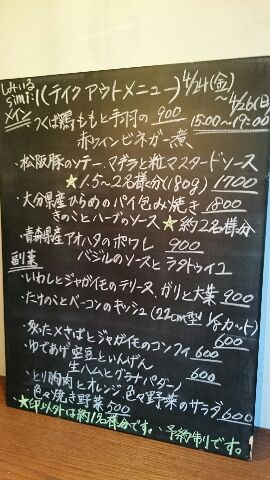 しみいる
simi:l (テイクアウトメニュー) 4/24(金)
～4/26(日)
メイン
15:00~19:00
つくば鶏ももと手羽の 900
赤ワインビネガー煮
・松阪豚のソテー マデラと粒マスタードソース
★1.5~2名様分(180g) 1700
・大分県産ひらめのパイ包み焼き 1800
きのことハーブのソース ★約2名様分
・青森県産アオハタのポワレ 900
バジルのソースとラタトゥイユ
副菜
・いわしとジャガイモのテリーヌ、ガリと大葉 900
・たけのことベーコンのキッシュ (22cm型 1/8カット)
600
・炙った〆さばとジャガイモのコンフィ 600
・ゆであげ空豆といんげん
生ハムとグラナパダーノ 600
・とり胸肉とオレンジ、色々野菜のサラダ 600
・色々焼き野菜 500
・★印以外は約1名様分です。・予約制です。